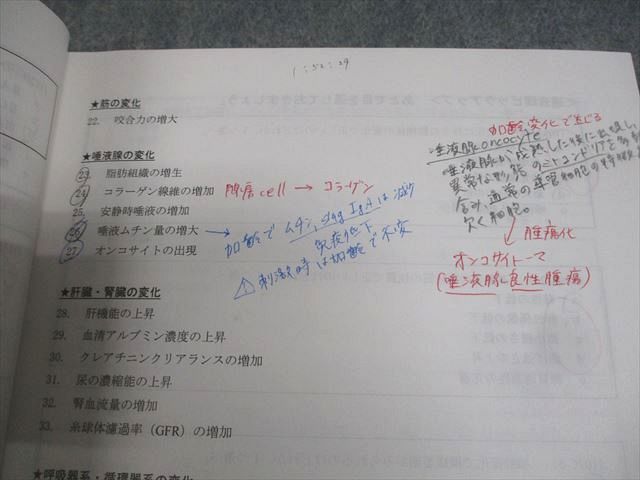 1:52:29
★筋の変化
22. 咬合力の増大
★唾液腺の変化
23. 脂肪組織の増生
24. コラーゲン線維の増加 脂肪cell → コラーゲン
25. 安静時唾液の増加
26. 唾液ムチン量の増大 → 加齢で ムチン, sIgA は減少
免疫低下
27. オンコサイトの出現
⚠ 刺激時は加齢で不変
加齢変化で生じる
唾液腺oncocyte
唾液腺が成熟した後に出現し、
異常な形態のミトコンドリアを多
含み、通常の導管細胞の特徴
欠く細胞。
↓ 腫瘍化
オンコサイトーマ
(唾液腺良性腫瘍)
★肝臓・腎臓の変化
28. 肝機能の上昇
29. 血清アルブミン濃度の上昇
30. クレアチニンクリアランスの増加
31. 尿の濃縮能の上昇
32. 腎血流量の増加
33. 糸球体濾過率(GFR)の増加
★呼吸器系・循環器系の変化